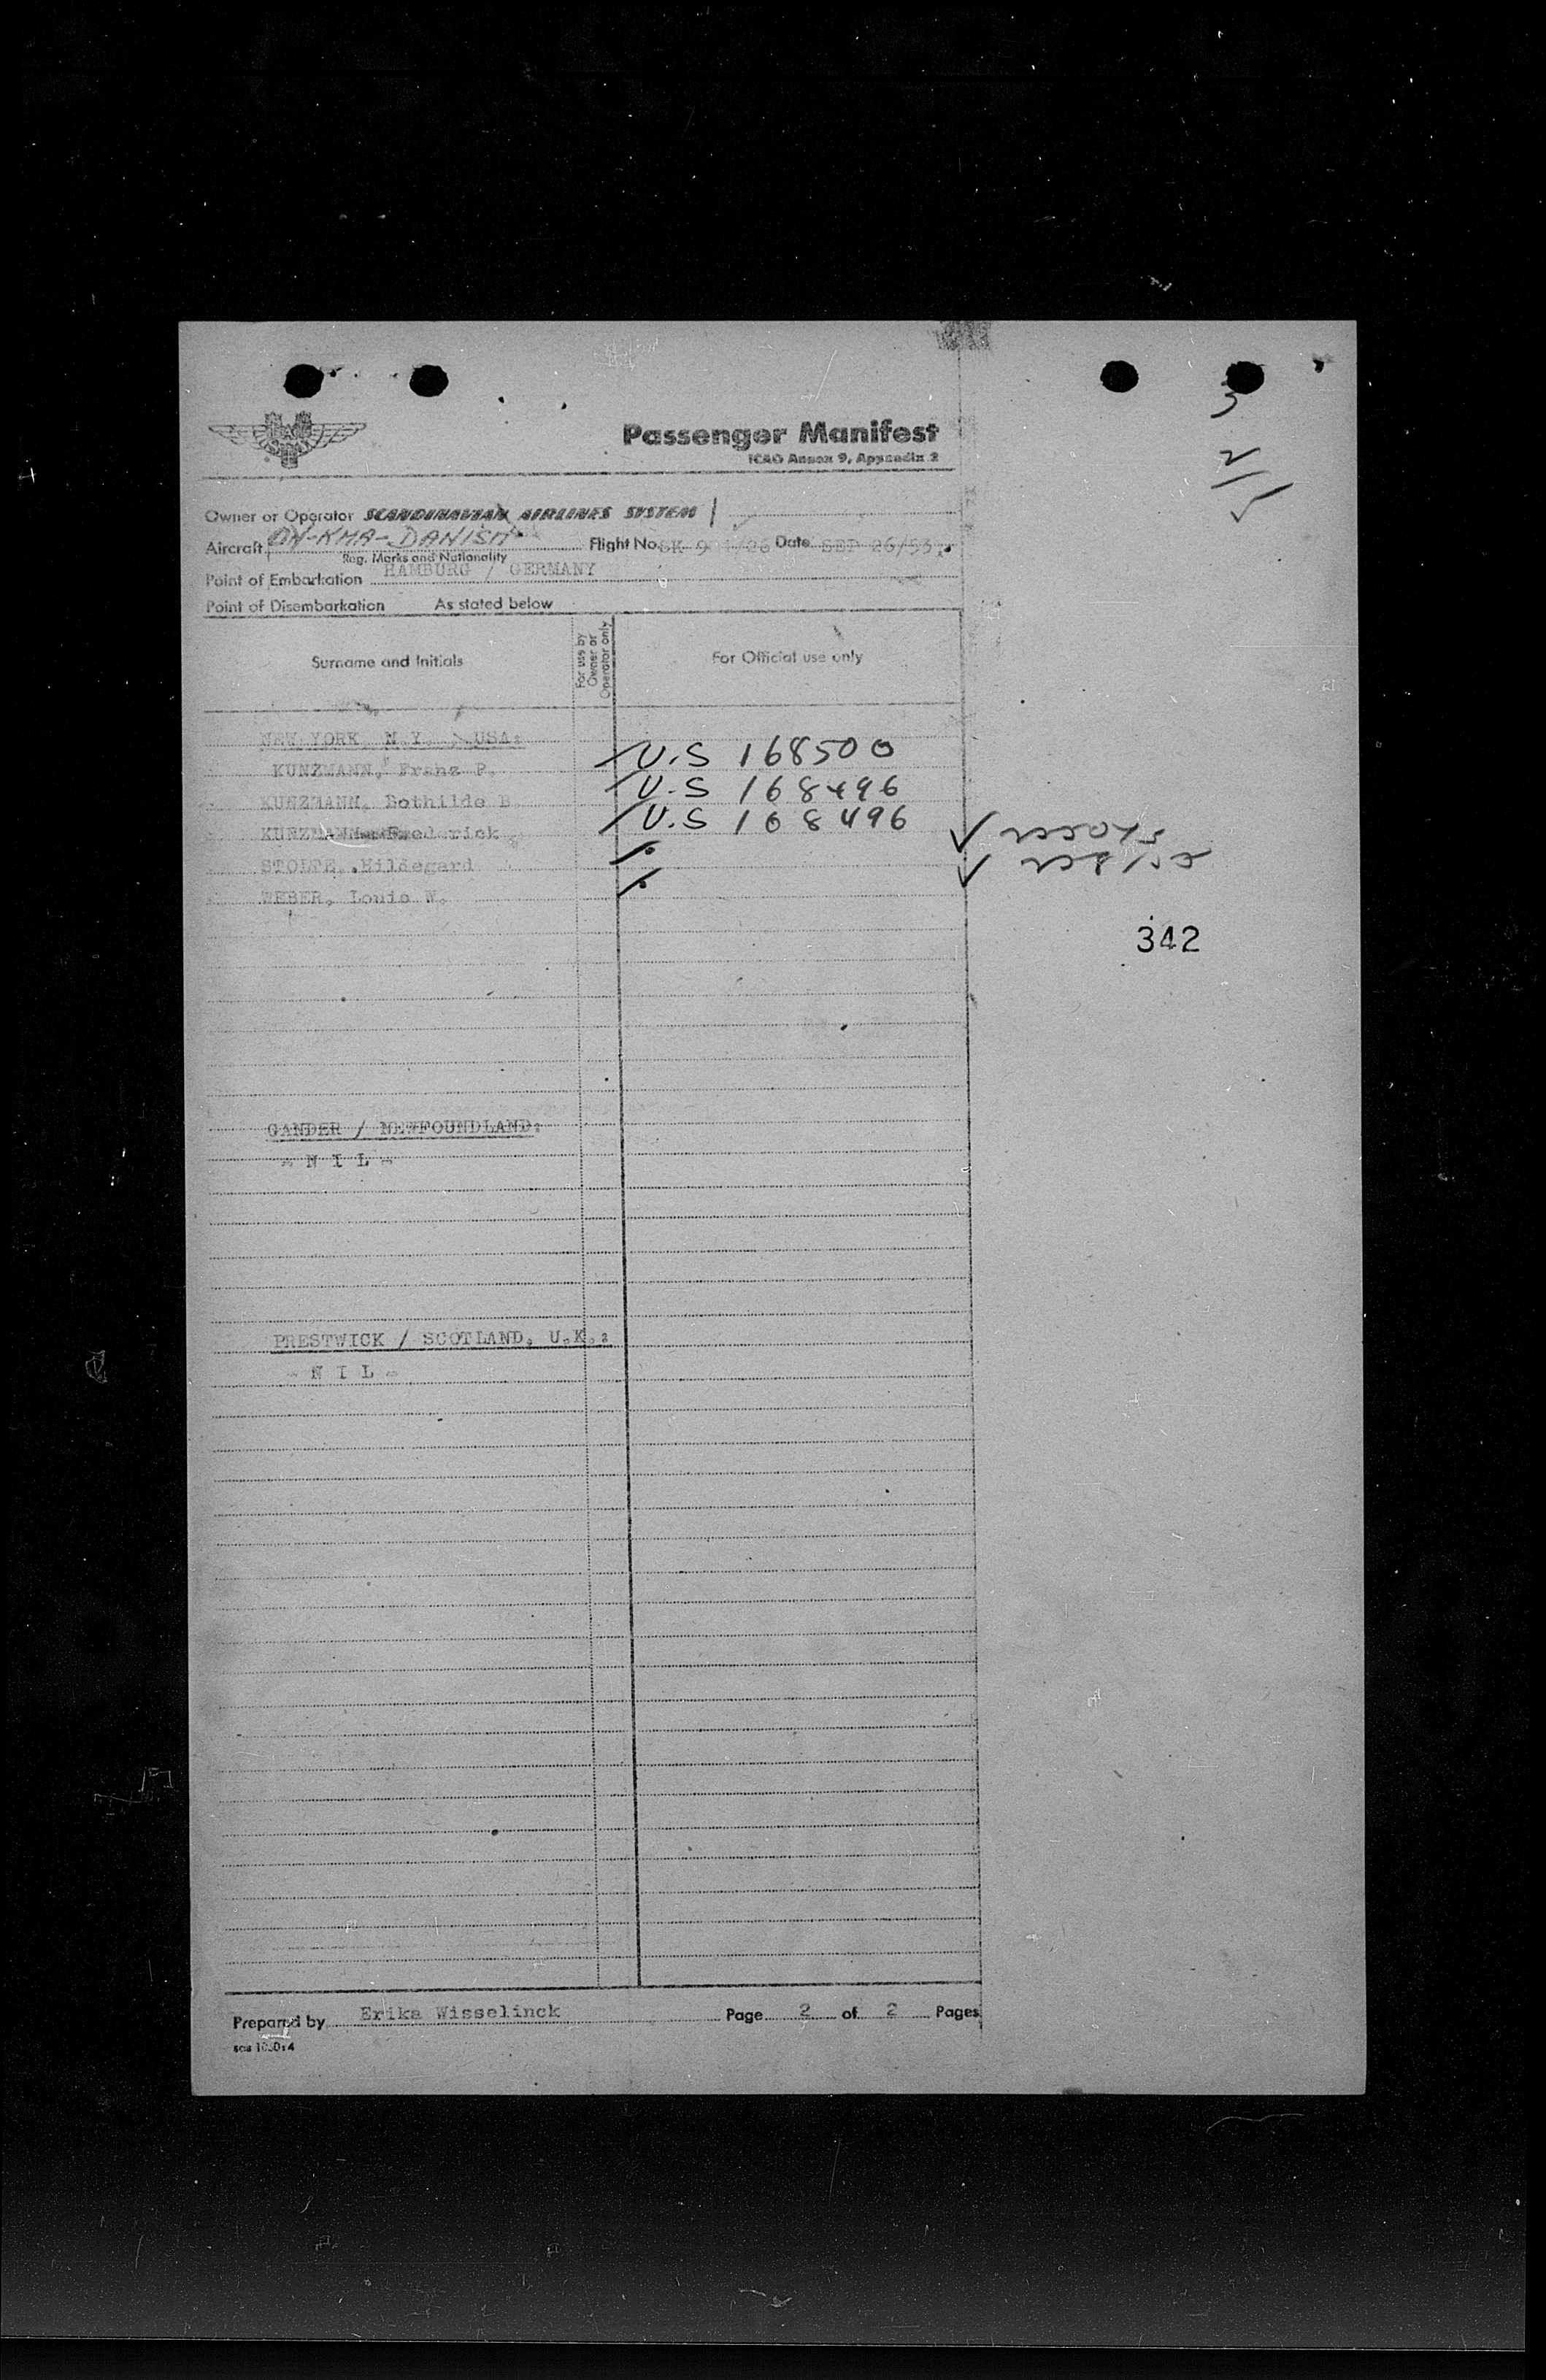 Passenger Manifest
ICAO Annex 9, Appendix 2
Owner or Operator SCANDINAVIAN AIRLINES SYSTEM
Aircraft DANISH Flight No. SK Date SEP 26/53.
Reg. Marks and Nationality
Point of Embarkation HAMBURG / GERMANY
Point of Disembarkation As stated below
Surname and Initials
For use by Owner or Operator only
For Official use only
NEW YORK, N.Y., USA:
U.S 168500
KUNZMANN, Franz P.
U.S 168496
KUNZMANN, Bothilde B.
U.S 168496
KUNZMANN, Frederick
STOLTE, Hildegard
WEBER, Louis W.
342
GANDER / NEWFOUNDLAND:
- N I L -
PRESTWICK / SCOTLAND, U.K.:
- N I L -
Prepared by Erika Wisselinck Page 2 of 2 Pages